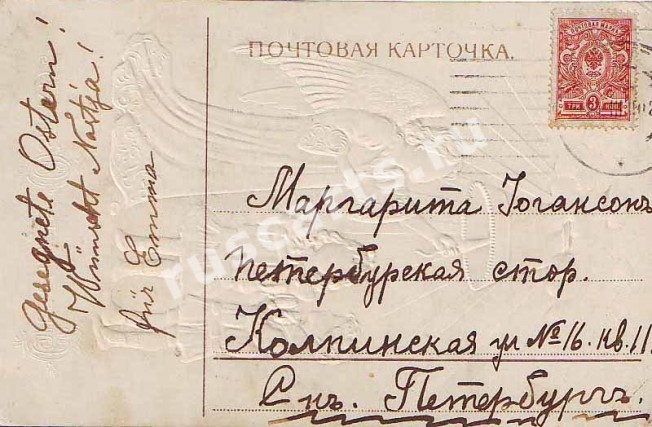 ПОЧТОВАЯ КАРТОЧКА.
ПОЧТОВАЯ МАРКА
ТРИ 3 КОП
Gesegnete Ostern!
Wünscht Nastja!
für Emma
Маргарита Іогансонъ
Петербурская стор.
Колпинская ул № 16. кв. 11.
С нъ. Петербургъ.
russcards.ru